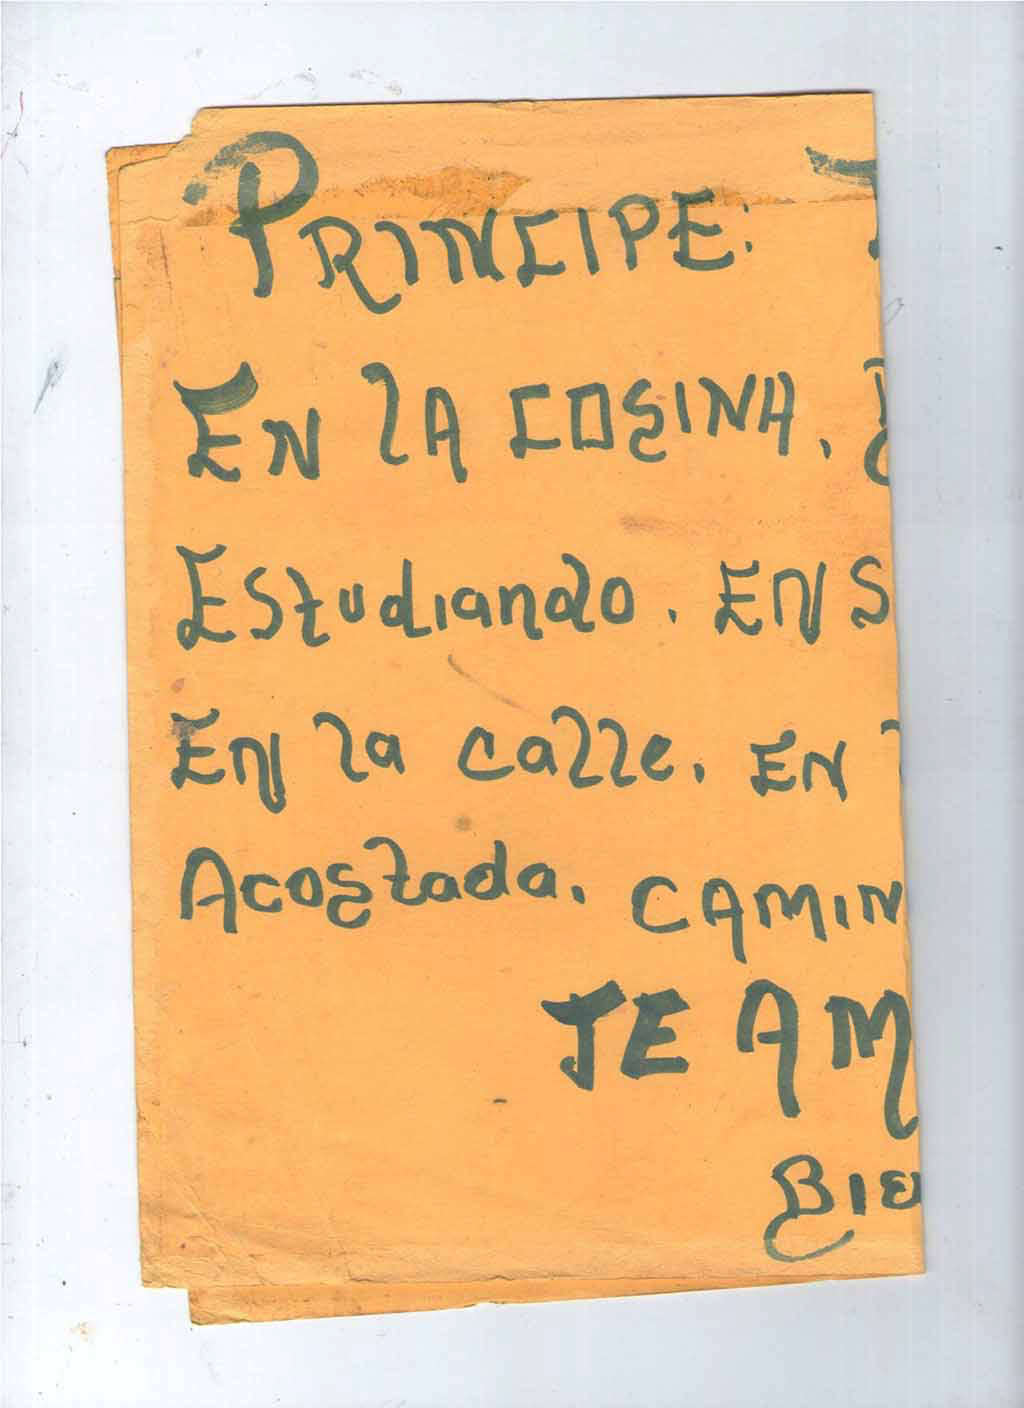 PRINCIPE:
EN lA COSINA.
Estudiando. EN S
EN la calle. EN
Acostada. CAMIN
TE AM
BIE